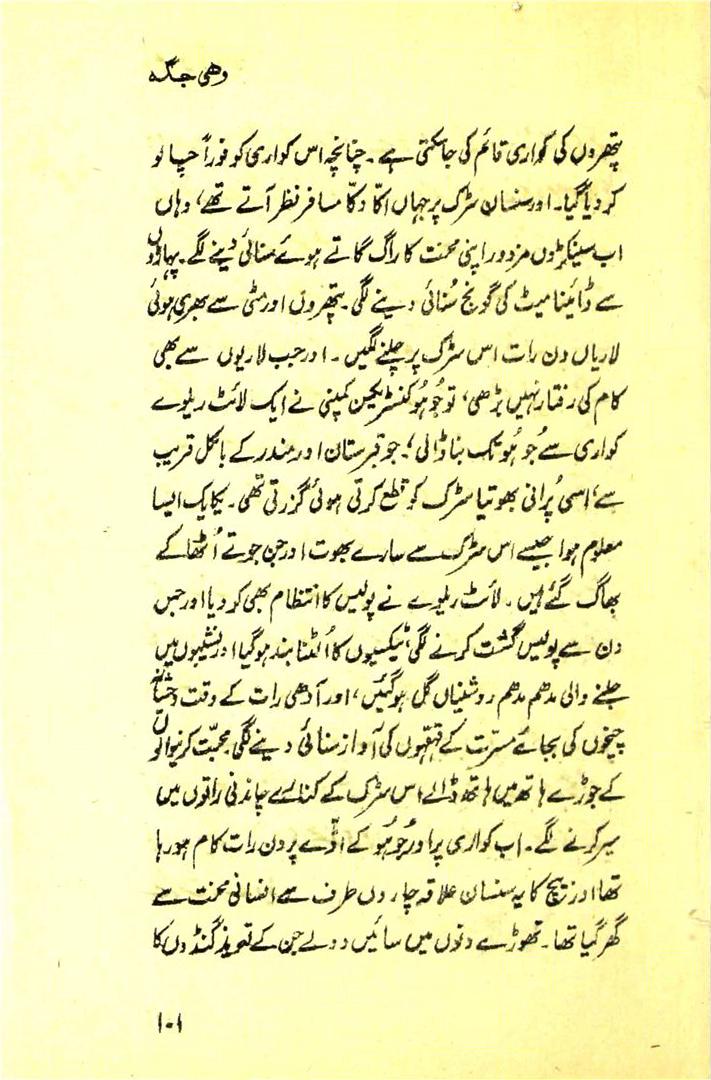 وہی جگہ
پتھروں کی کواری قائم کی جاسکتی ہے۔ چنانچہ اس کواری کو فوراً چالو
کر دیا گیا۔ اور سنسان سڑک پر جہاں اکّا دکّا مسافر نظر آتے تھے، وہاں
اب سینکڑوں مزدور اپنی محنت کا راگ گاتے ہوئے سنائی دینے لگے۔ پہاڑوں
سے ڈائینامیٹ کی گونج سُنائی دینے لگی۔ پتھروں اور مٹی سے بھری ہوئی
لاریاں دن رات اس سڑک پر چلنے لگیں۔ اور جب لاریوں سے بھی
کام کی رفتار نہیں بڑھی، تو جُوہُو کنسٹریکچن کمپنی نے ایک لائٹ ریلوے
کواری سے جُوہُو تک بنا ڈالی، جو قبرستان اور مندر کے بالکل قریب
سے، اسی پُرانی بھوتیا سڑک کو قطع کرتی ہوئی گزرتی تھی۔ یکایک ایسا
معلوم ہوا جیسے اس سڑک سے سارے بھوت اور جن جوتے اُٹھا کے
بھاگ گئے ہیں۔ لائٹ ریلوے نے پولیس کا انتظام بھی کر دیا اور جس
دن سے پولیس گشت کرنے لگی، ٹیکسیوں کا اُلٹنا بند ہو گیا اور نشیبوں میں
جلنے والی مدھم مدھم روشنیاں گل ہو گئیں، اور آدھی رات کے وقت دہشتناک
چیخوں کی بجائے مسرّت کے قہقہوں کی آواز سنائی دینے لگی۔ محبّت کرنیوالوں
کے جوڑے ہاتھ میں ہاتھ ڈالے اس سڑک کے کنارے چاندنی راتوں میں
سیر کرنے لگے۔ اب کواری پر اور جُوہُو کے اڈّے پر دن رات کام ہو رہا
تھا اور بیچ کا یہ سنسان علاقہ چاروں طرف سے انسانی محنت سے
گھر گیا تھا۔ تھوڑے دنوں میں سائیں دولے جن کے تعویذ گنڈوں کا
۱۰۱